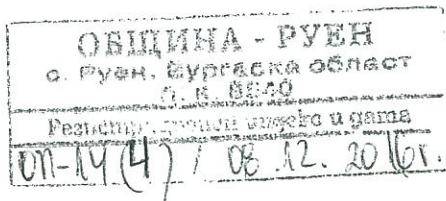 ОБЩИНА - РУЕН
с. Руен, Бургаска област
П. К. 8540
Регистрационен индекс и дата
ОП-14(4) / 08.12. 2016г.